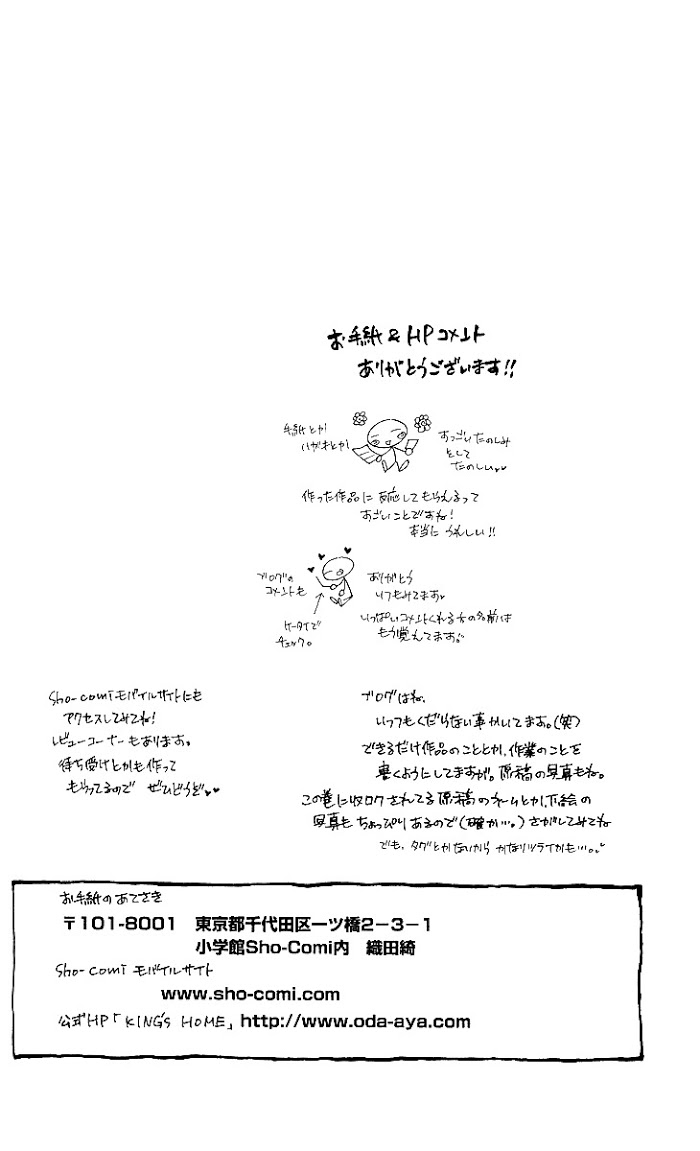 お手紙&HPコメント
ありがとうございます!!
手紙とか
ハガキとか
すっごいたのしみ
として
たのしい♥♥
作った作品に反応してもらえるって
すごいことですね!
本当にうれしい!!
ブログの
コメントも
ケータイで
チェック。
ありがとう
いつもみてます♥
いっぱいコメントくれる方の名前は
もう覚えてます。
ブログはね、
いっつもくだらない事かいてます。(笑)
できるだけ作品のこととか、作業のことを
書くようにしてますが。原稿の写真もね。
この巻に収ロクされてる原稿のネームとか、下絵の
写真もちょっぴりあるので(確か…。)さがしてみてね
でも、タグとかないからかなりツライかも…。
Sho-comiモバイルサイトにも
アクセスしてみてね!
レビューコーナーもあります。
待ち受けとかも作って
もらってるので ぜひどうぞ♥♥
お手紙のあてさき
〒101-8001 東京都千代田区一ツ橋2-3-1
小学館Sho-Comi内 織田綺
Sho-comi モバイルサイト
www.sho-comi.com
公式HP「KING's HOME」http://www.oda-aya.com